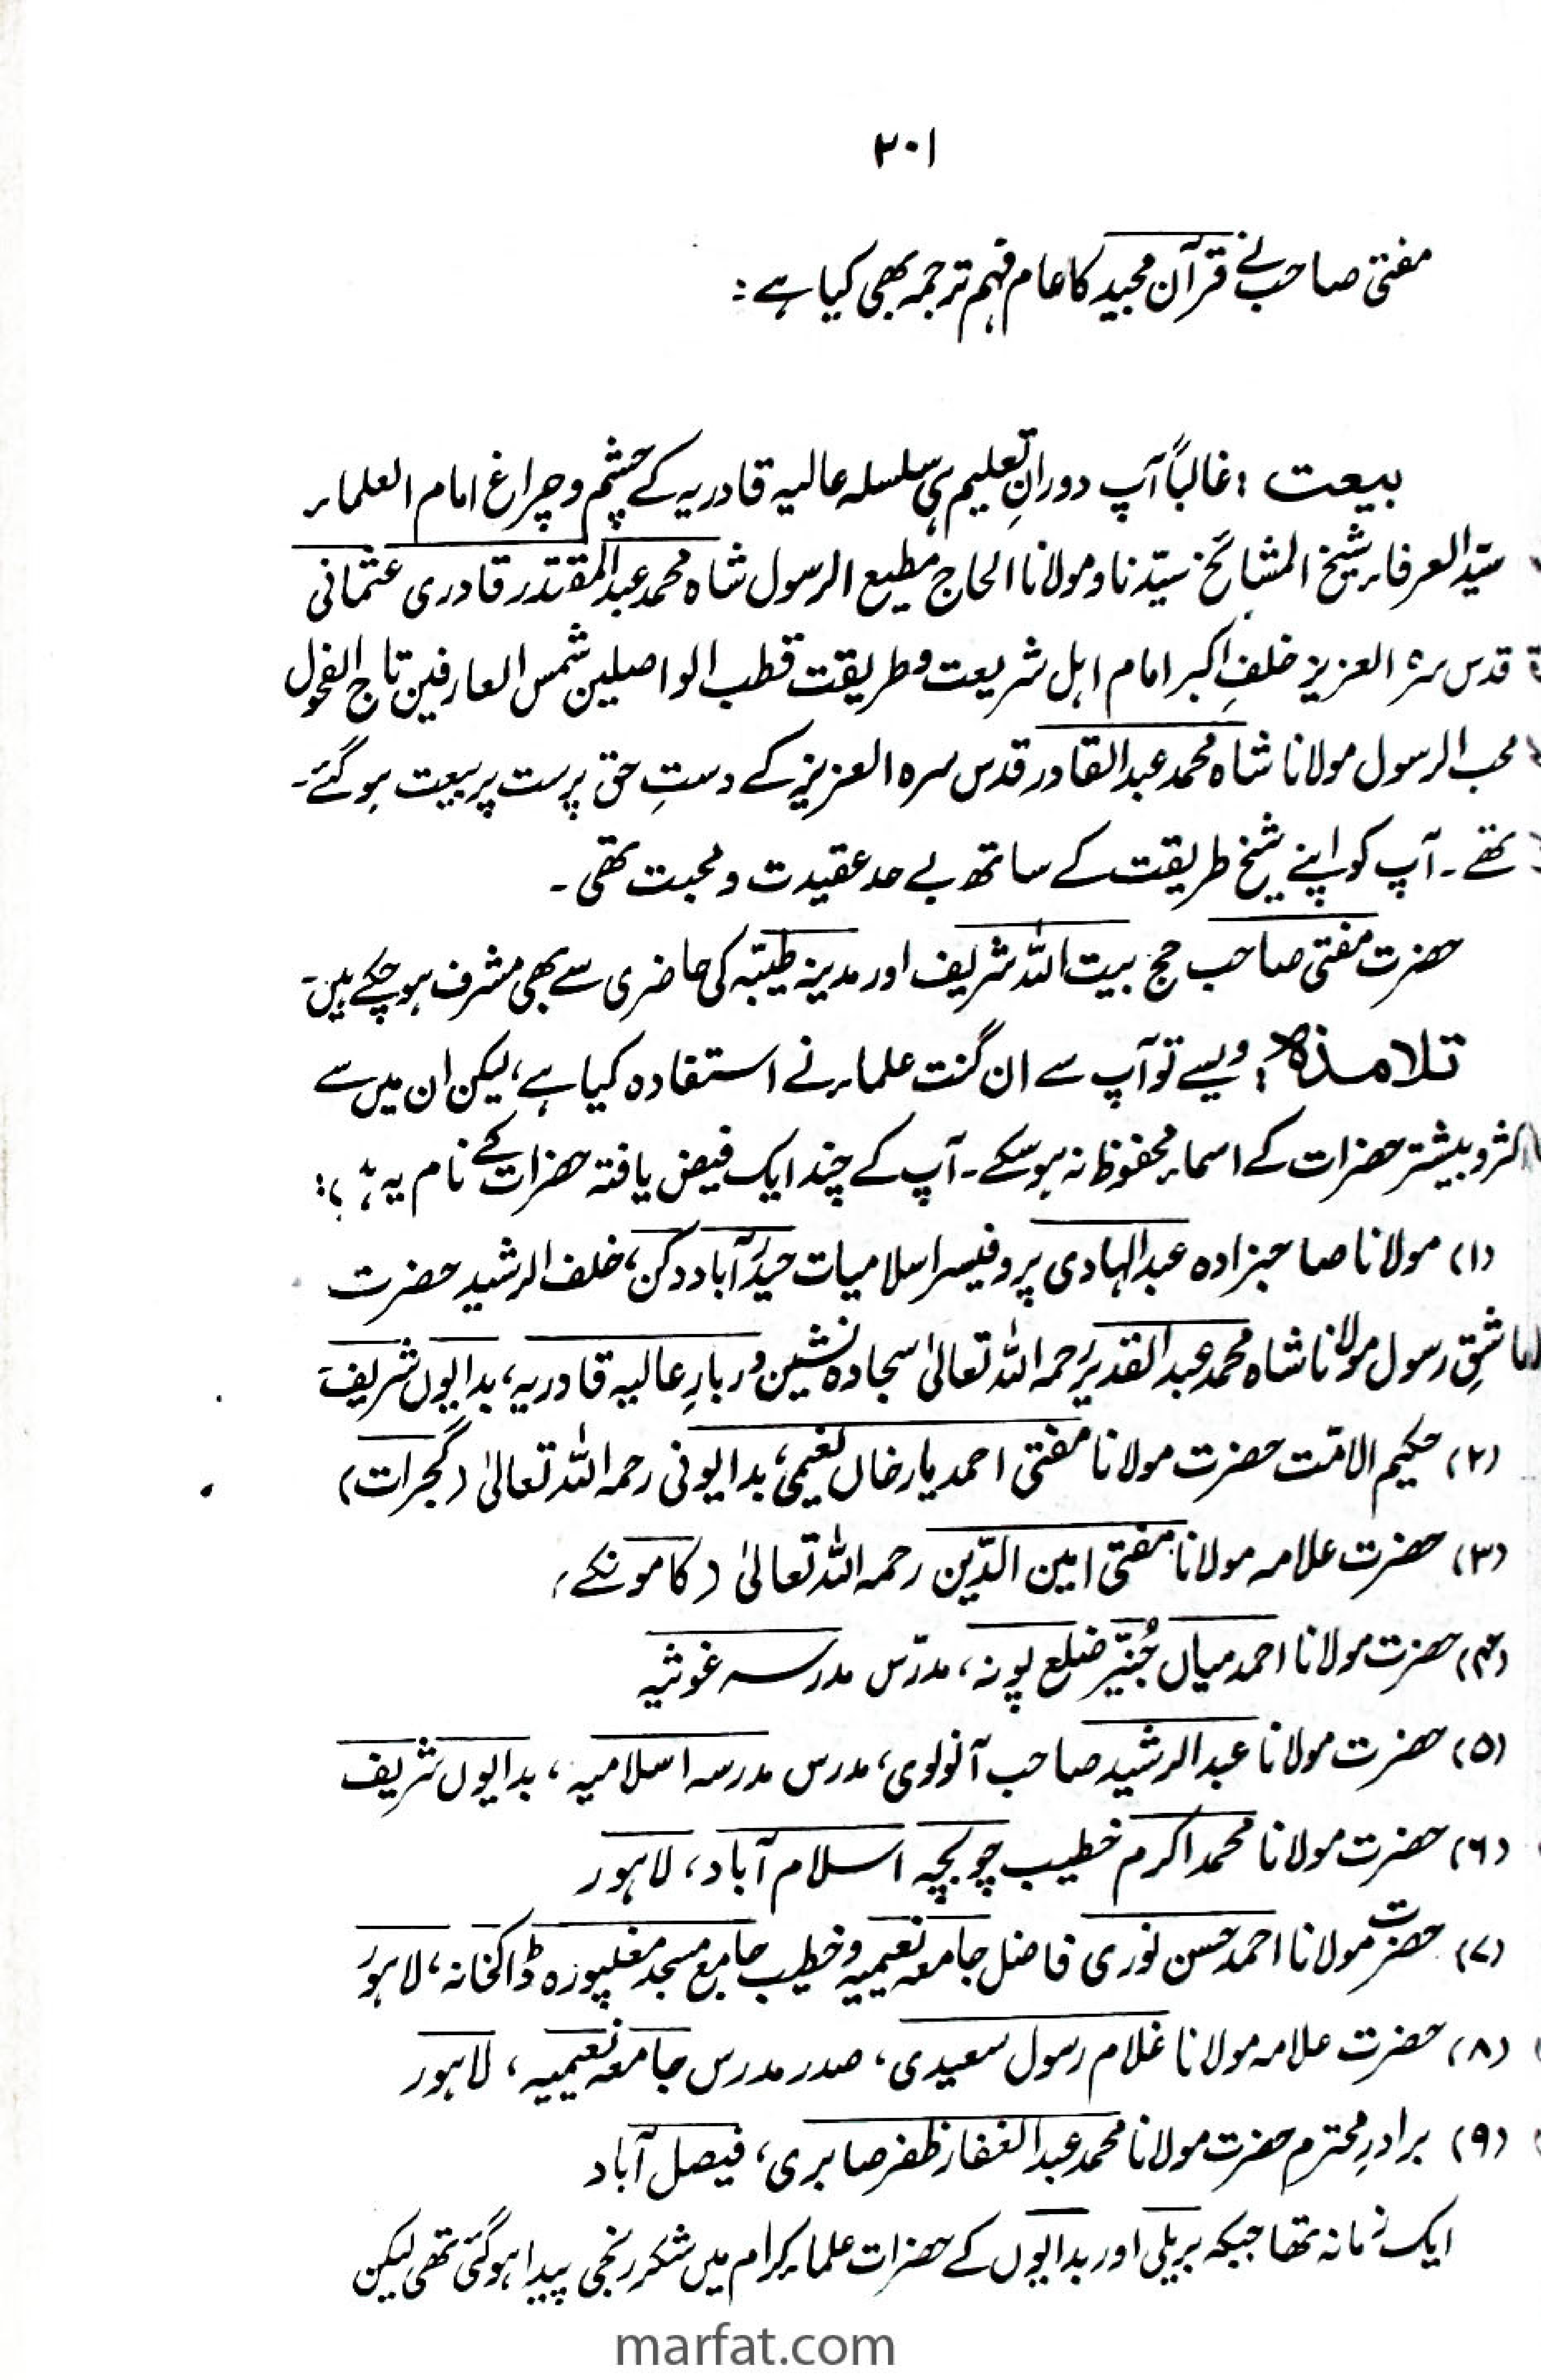 ۲۰۱
مفتی صاحب نے قرآن مجید کا عام فہم ترجمہ بھی کیا ہے :
بیعت : غالباً آپ دورانِ تعلیم ہی سلسلہ عالیہ قادریہ کے چشم و چراغ امام العلماء
سیّد العرفاء شیخ المشائخ سیّدنا و مولانا الحاج مطیع الرسول شاہ محمد عبدالمقتدر قادری عثمانی
قدس سرہ العزیز خلفِ اکبر امام اہل شریعت و طریقت قطب الواصلین شمس العارفین تاج الفحول
محب الرسول مولانا شاہ محمد عبدالقادر قدس سرہ العزیز کے دستِ حق پرست پر بیعت ہو گئے۔
تھے ۔ آپ کو اپنے شیخ طریقت کے ساتھ بے حد عقیدت و محبت تھی ۔
حضرت مفتی صاحب حج بیت اللہ شریف اور مدینہ طیبّہ کی حاضری سے بھی مشرف ہو چکے ہیں۔
تلامذہ : ویسے تو آپ سے ان گنت علماء نے استفادہ کیا ہے، لیکن ان میں سے
اکثر و بیشتر حضرات کے اسماء محفوظ نہ ہو سکے ۔ آپ کے چند ایک فیض یافتہ حضرات کے نام یہ ہیں :
(۱) مولانا صاحبزادہ عبدالہادی پروفیسر اسلامیات حیدرآباد دکن، خلف الرشید حضرت
عاشقِ رسول مولانا شاہ محمد عبدالقدیر رحمہ اللہ تعالیٰ سجادہ نشین دربارِ عالیہ قادریہ، بدایوں شریف۔
(۲) حکیم الامّت حضرت مولانا مفتی احمد یار خاں نعیمی، بدایونی رحمہ اللہ تعالیٰ (گجرات)
(۳) حضرت علامہ مولانا مفتی امین الدّین رحمہ اللہ تعالیٰ (کامونکے)
(۴) حضرت مولانا احمد میاں جُنیّر ضلع پونہ، مدرّس مدرسہ غوثیہ
(۵) حضرت مولانا عبدالرشید صاحب آنولوی، مدرس مدرسہ اسلامیہ، بدایوں شریف
(۶) حضرت مولانا محمد اکرم خطیب چوبچہ اسلام آباد، لاہور
(۷) حضرت مولانا احمد حسن نوری فاضل جامعہ نعیمیہ و خطیب جامع مسجد مغلپورہ ڈاکخانہ، لاہور
(۸) حضرت علامہ مولانا غلام رسول سعیدی، صدر مدرس جامعہ نعیمیہ، لاہور
(۹) برادرِ محترم حضرت مولانا محمد عبدالغفار ظفر صابری، فیصل آباد
ایک زمانہ تھا جبکہ بریلی اور بدایوں کے حضرات علماء کرام میں شکر رنجی پیدا ہو گئی تھی لیکن
marfat.com